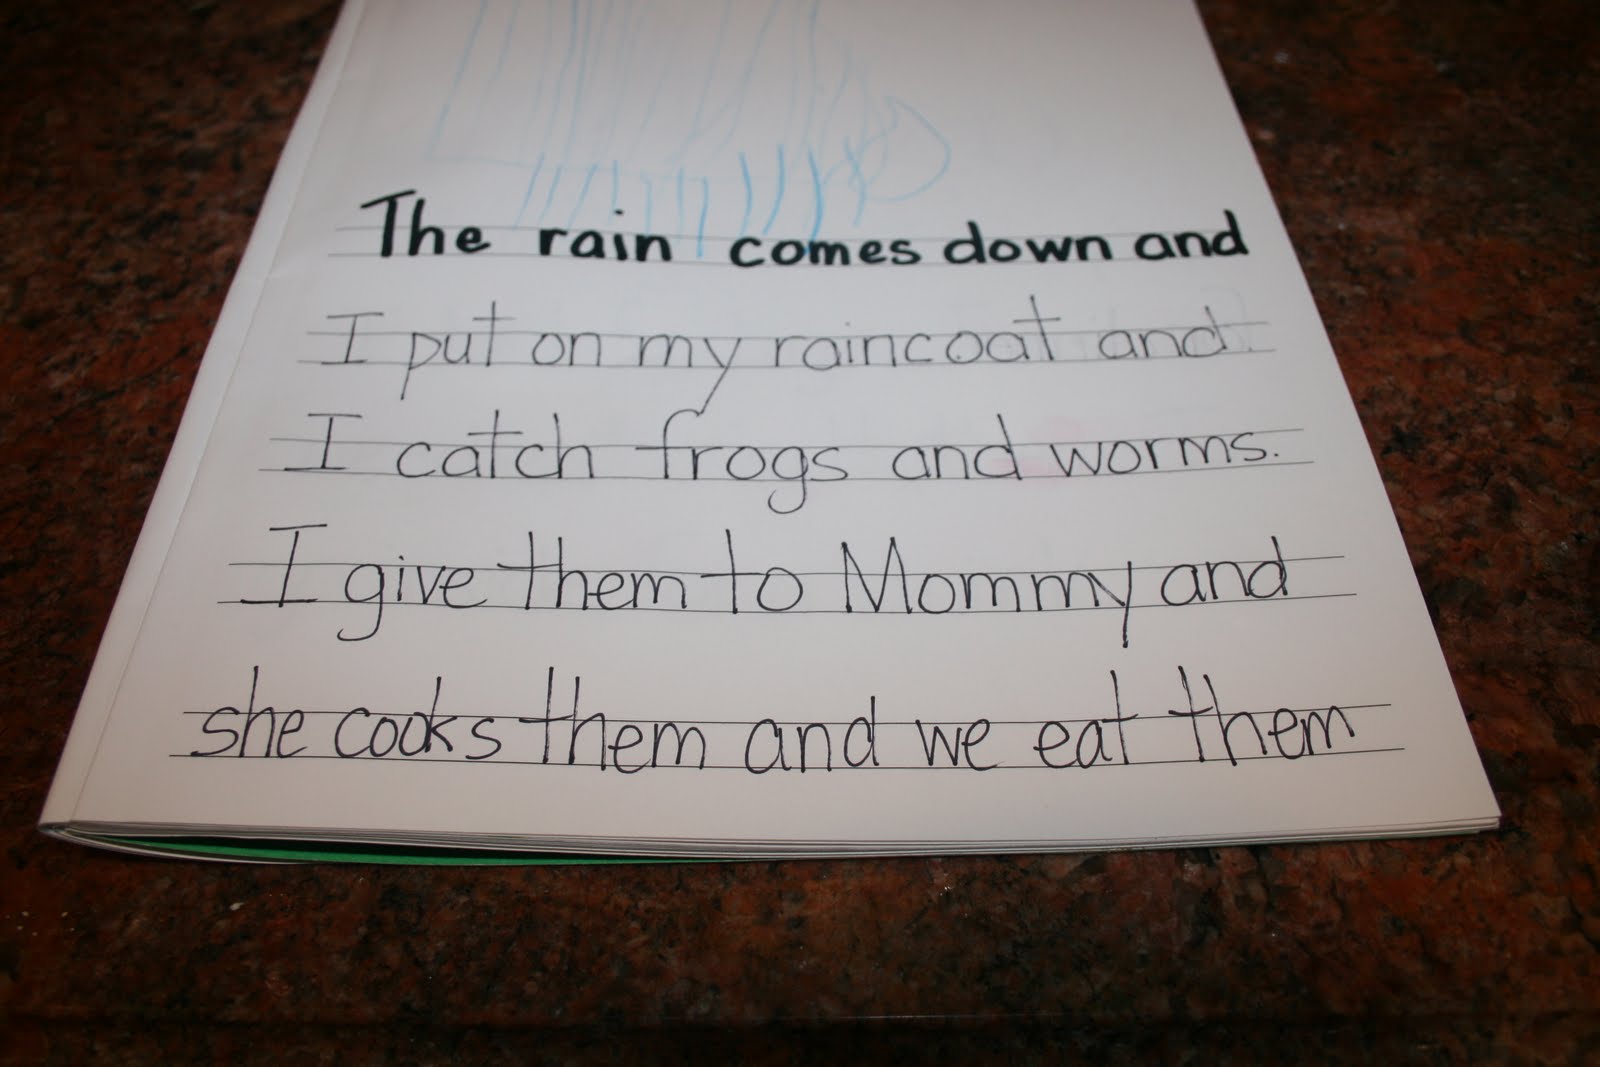 The rain comes down and
I put on my raincoat and
I catch frogs and worms.
I give them to Mommy and
she cooks them and we eat them